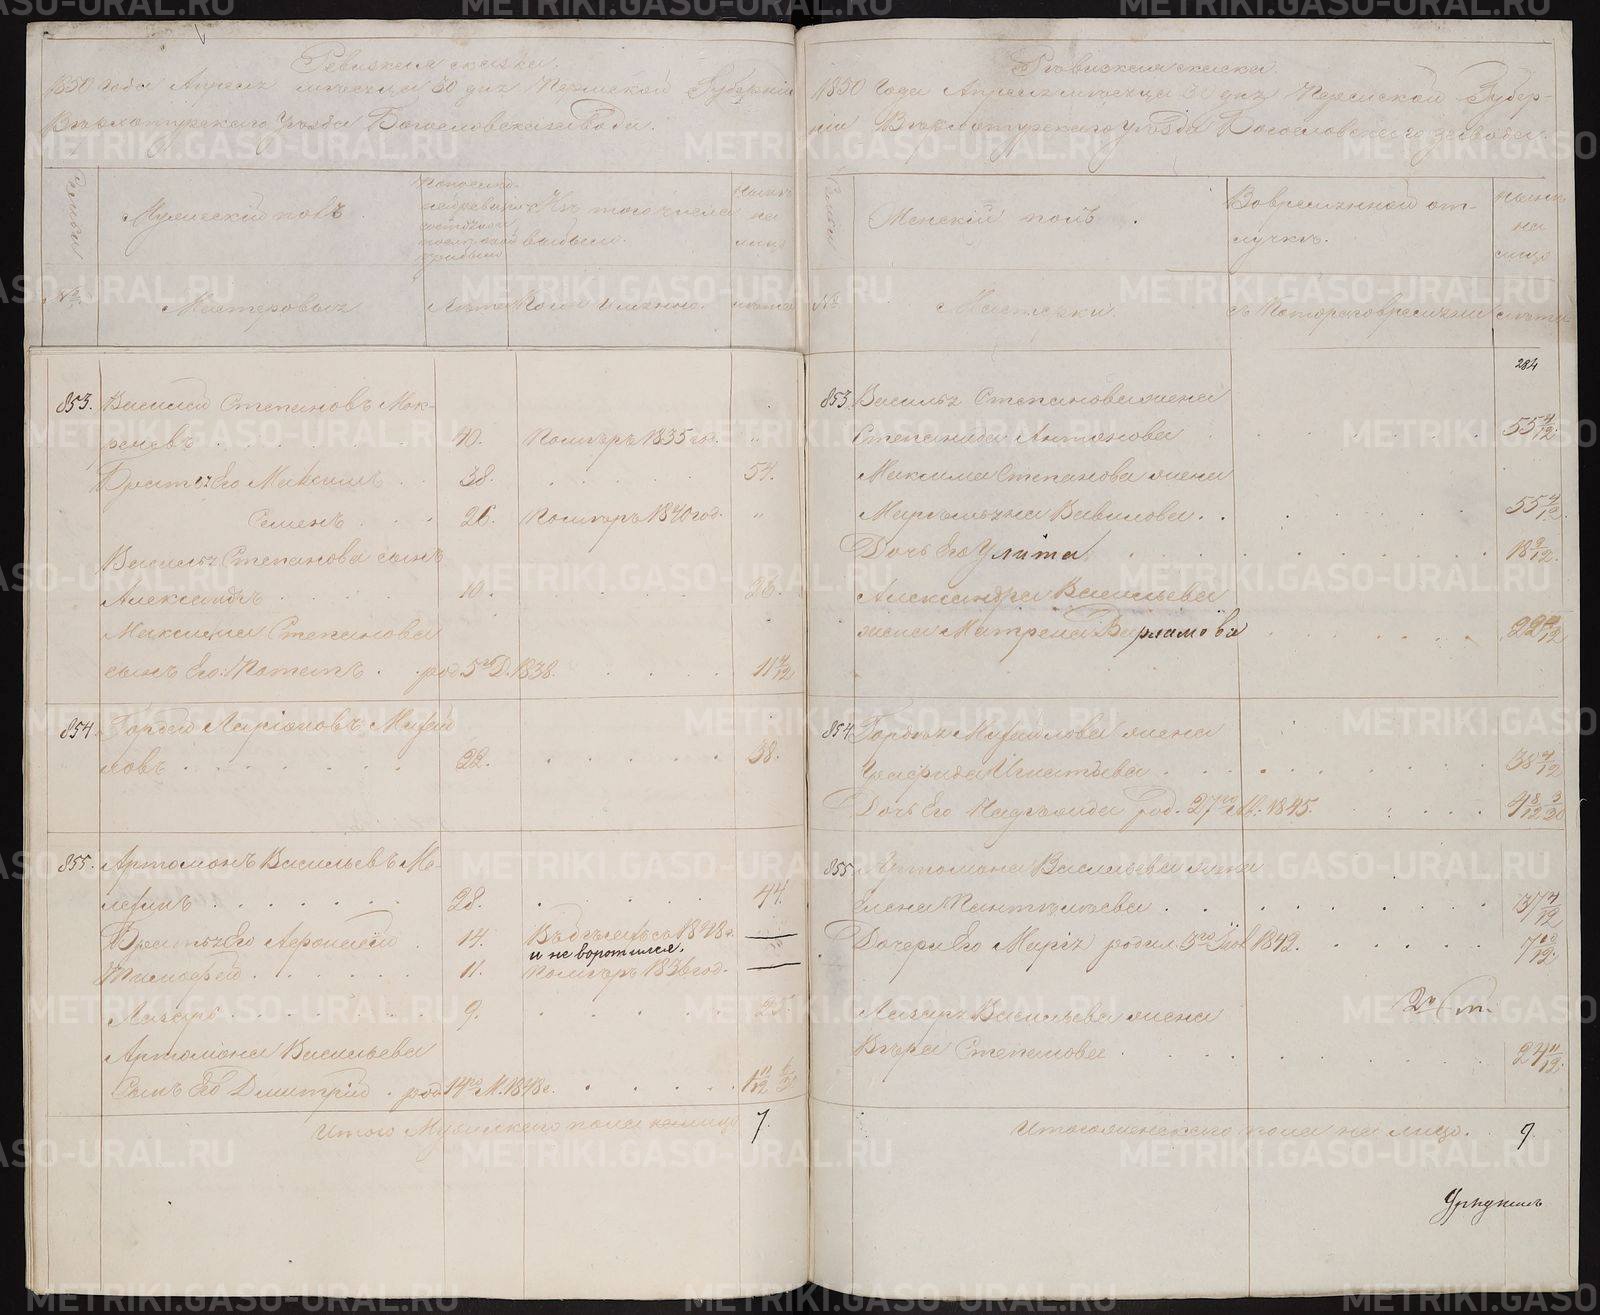 Ревизская сказка.
1850 года Апреля месяца 30 дня Пермской Губернии
Верхотурскаго Уезда Богословскаго завода.
Семьи
Мужеский полъ.
Изъ того числа
выбыло.
Ныне
на
лицо
№
Мастеровыхъ
Лета
Когда именно.
лета
853. Василей Степановъ Мок-
рецевъ 40. Померъ 1835 год. "
Братья Его Максимъ 38. 54.
Семенъ 26. Померъ 1840 год. "
Василья Степанова сынъ
Александръ 10. 26.
Максима Степанова
сынъ Его: Потапъ род. 5го Д. 1838. 11 4/12
854. Гордей Ларіоновъ Михай
ловъ 22. 38.
855. Артомонъ Васильевъ Ме-
лехинъ 28. 44.
Братья Его Афонасей 14. Въ бегахъ съ 1848 г.
и не воротился.
Тимофей 11. Померъ 1836 год.
Лазарь 9. 25.
Артомона Васильева
Сынъ Его Дмитрій род. 14го М. 1848 г. 1 11/12
Итого Мужескаго пола на лицо 7
Ревизская сказка.
1850 Года Апреля месяца 30 дня Пермской Губер-
ніи Верхотурскаго Уезда Богословскаго завода.
Семьи
Женскій полъ.
Во временной от-
лучке.
Ныне
на
лицо
№
съ Котораго времени
лета
284
853. Василья Степанова жена
Степанида Антонова 55 4/12.
Максима Степанова жена
Маремьяна Вавилова 55 4/12.
Дочь Его Улита 18 9/12.
Александра Васильева
жена Матрена Варламова 22 4/12
854 Гордея Михайлова жена
Игнатьева 38 4/12
Дочь Его Надежда род. 27го 1845. 4 8/12 3/30
855 Артомона Васильева жена
Елена Пантелеева 37 4/12
Дочери Его Марія родил. 5го 1842. 7 10/12.
Лазаря Васильева жена
Вера Степанова 24 11/12.
Итого женскаго пола на лицо. 9
METRIKI.GASO-URAL.RU